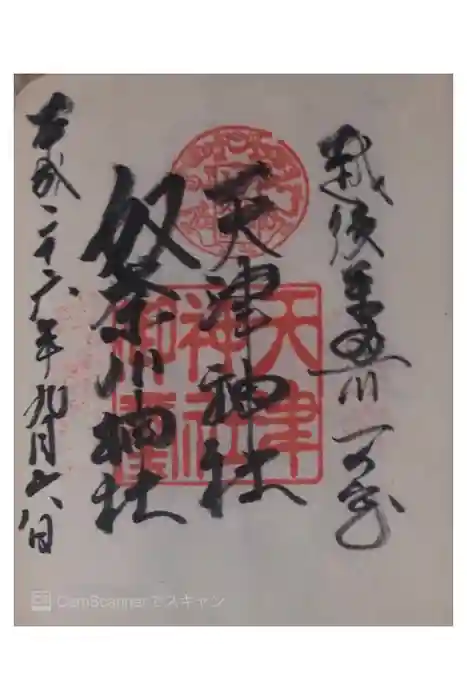 越後糸魚川 一の宮
天津神社
奴奈川神社
平成二十六年九月六日
天津神社御璽
CamScannerでスキャン